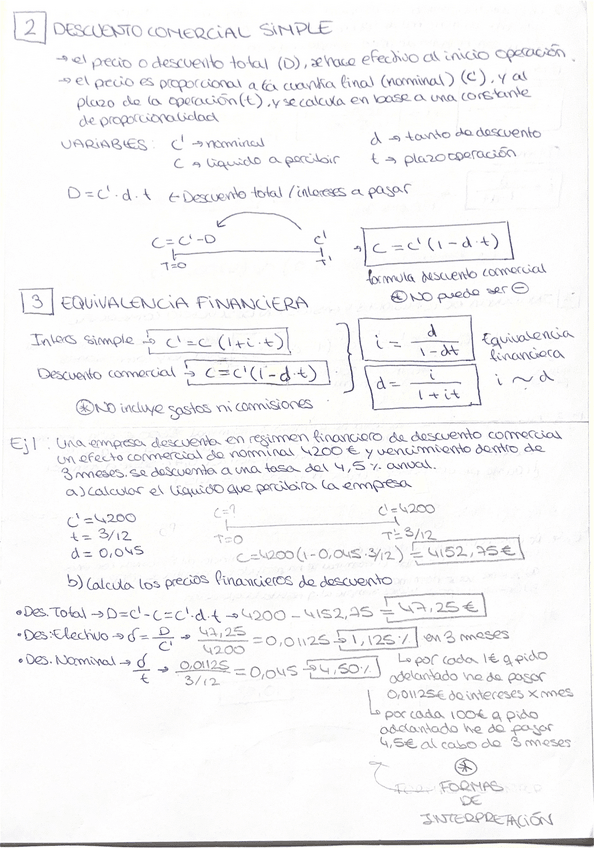 2 DESCUENTO COMERCIAL SIMPLE
→ el pecio o descuento total (D), se hace efectivo al inicio operación.
→ el pecio es proporcional a la cuantía final (nominal) (C'), y al
plazo de la operación (t), y se calcula en base a una constante
de proporcionalidad
VARIABLES: C' → nominal d → tanto de descuento
C → líquido a percibir t → plazo operación
D = C' · d · t ← Descuento total / intereses a pagar
C = C' - D C' → C = C' (1 - d · t)
T=0 T'
formula descuento comercial
* NO puede ser ⊖
3 EQUIVALENCIA FINANCIERA
Interes simple → C' = C (1 + i · t) i = d / 1 - dt Equivalencia
Descuento comercial → C = C' (1 - d · t) d = i / 1 + it financiera
i ~ d
* NO incluye gastos ni comisiones
Ej 1: Una empresa descuenta en régimen financiero de descuento comercial
un efecto comercial de nominal 4200€ y vencimiento dentro de
3 meses. se descuenta a una tasa del 4,5% anual.
a) Calcular el líquido que percibira la empresa
C' = 4200 C = ? C' = 4200
t = 3/12 T=0 T' = 3/12
d = 0,045 C = 4200 (1 - 0,045 · 3/12) = 4152,75€
b) Calcula los precios financieros de descuento
• Des. Total → D = C' - C = C' · d · t → 4200 - 4152,75 = 47,25€
• Des. Efectivo → δ = D / C' → 47,25 / 4200 = 0,01125 → 1,125% en 3 meses
• Des. Nominal → δ / t → 0,01125 / 3/12 = 0,045 → 4,50%
↳ por cada 1€ q pido
adelantado he de pagar
0,01125€ de intereses x mes
↳ por cada 100€ q pido
adelantado he de pagar
4,5€ al cabo de 3 meses
*
FORMAS
DE
INTERPRETACIÓN